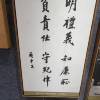 明禮義 知廉恥
負責任 守紀律